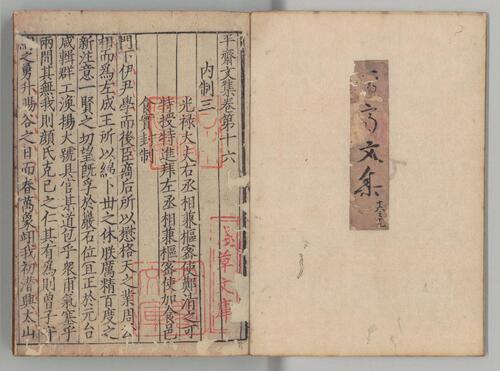 平齋文集卷第十六
内制三
光禄大夫右丞相兼樞密使鄭清之可
特授特進拜左丞相兼樞密使加食邑
食實封制
門下伊尹學而後臣商后所以懋格天之業周公
相而為左成王所以綿卜世之休朕厲精百度之
新注意一賢之切望旣孚於巖石位宜正於元台
咸輯群工渙揚大號具官某道包乎衆甫氣塞乎
兩間其無我則顔氏克己之仁其有為則曾子守
之勇升暘谷之日而春萬象
淺草文庫
齋文集